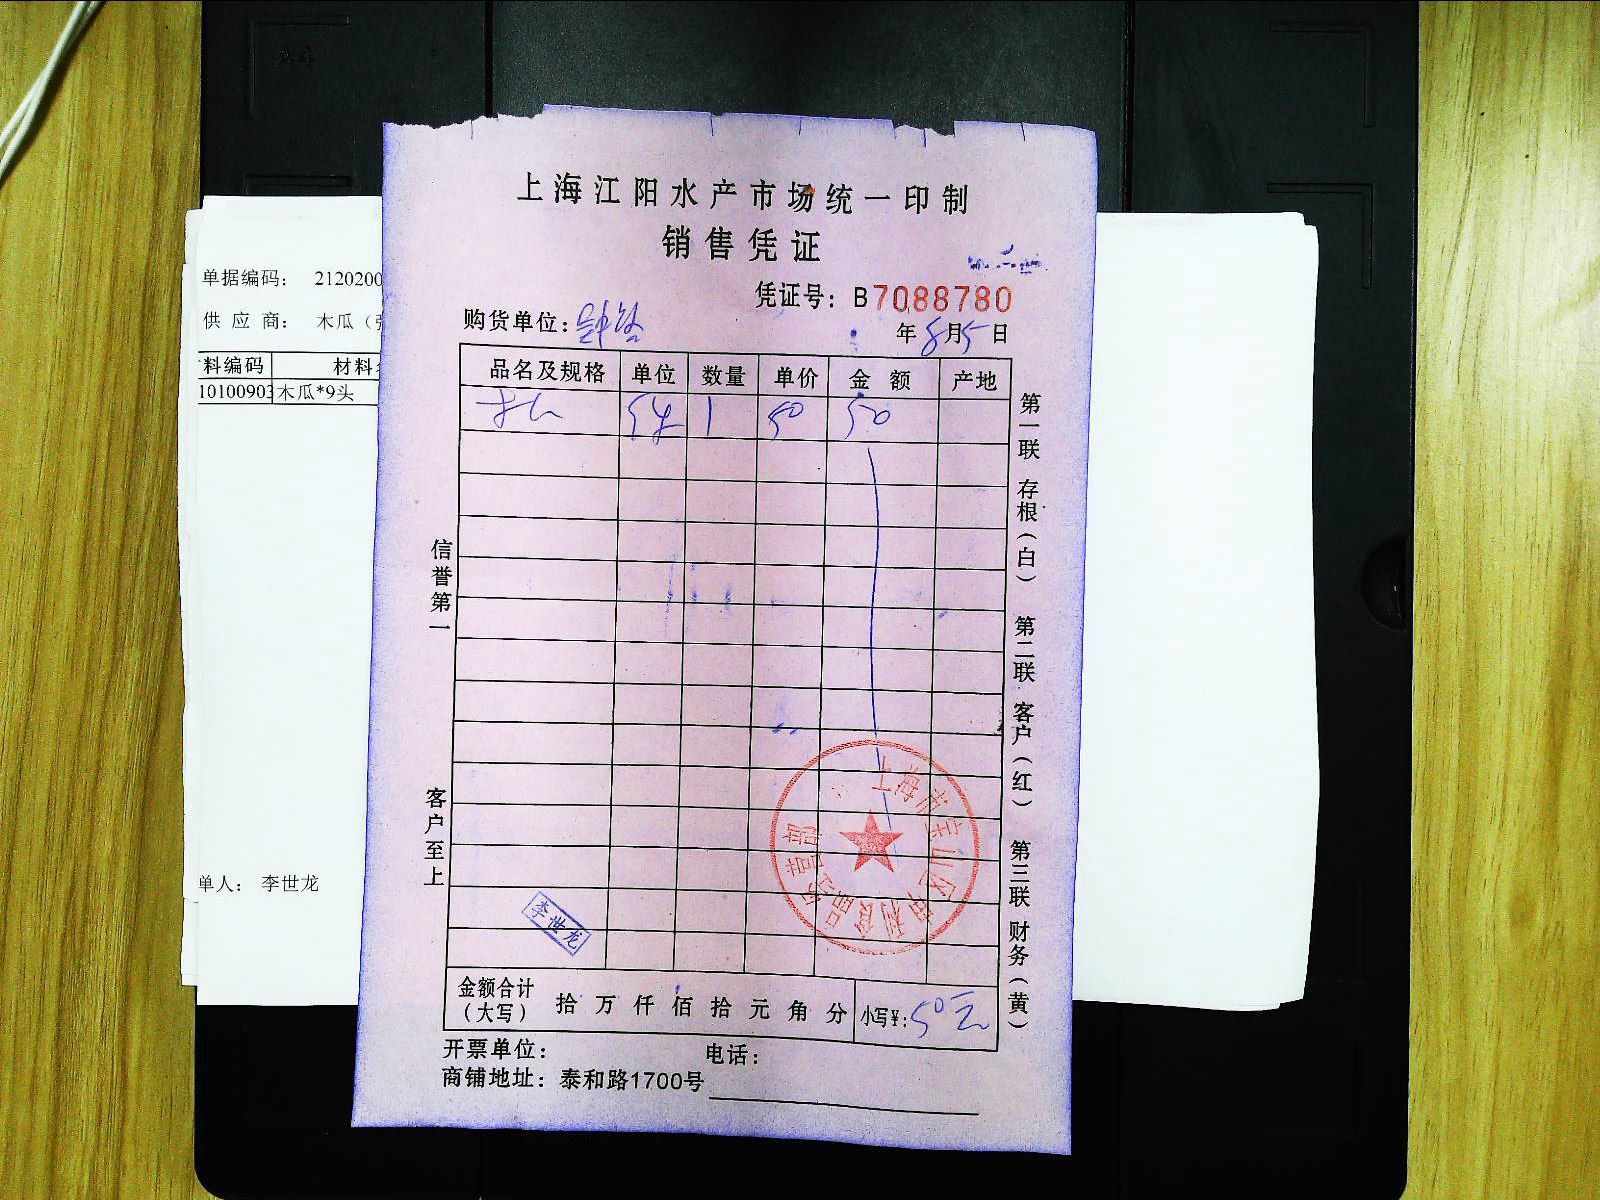 A4
上海江阳水产市场统一印制
销售凭证
凭证号：B7088780
购货单位：
年8月5日
品名及规格 单位 数量 单价 金额 产地
1 50 50
信誉第一
客户至上
第一联 存根（白） 第二联 客户（红） 第三联 财务（黄）
李世龙
金额合计（大写） 拾 万 仟 佰 拾 元 角 分 小写¥：50元
开票单位： 电话：
商铺地址：泰和路1700号
单据编码： 2120200
供应商： 木瓜
料编码 材料
10100903 木瓜*9头
单人： 李世龙